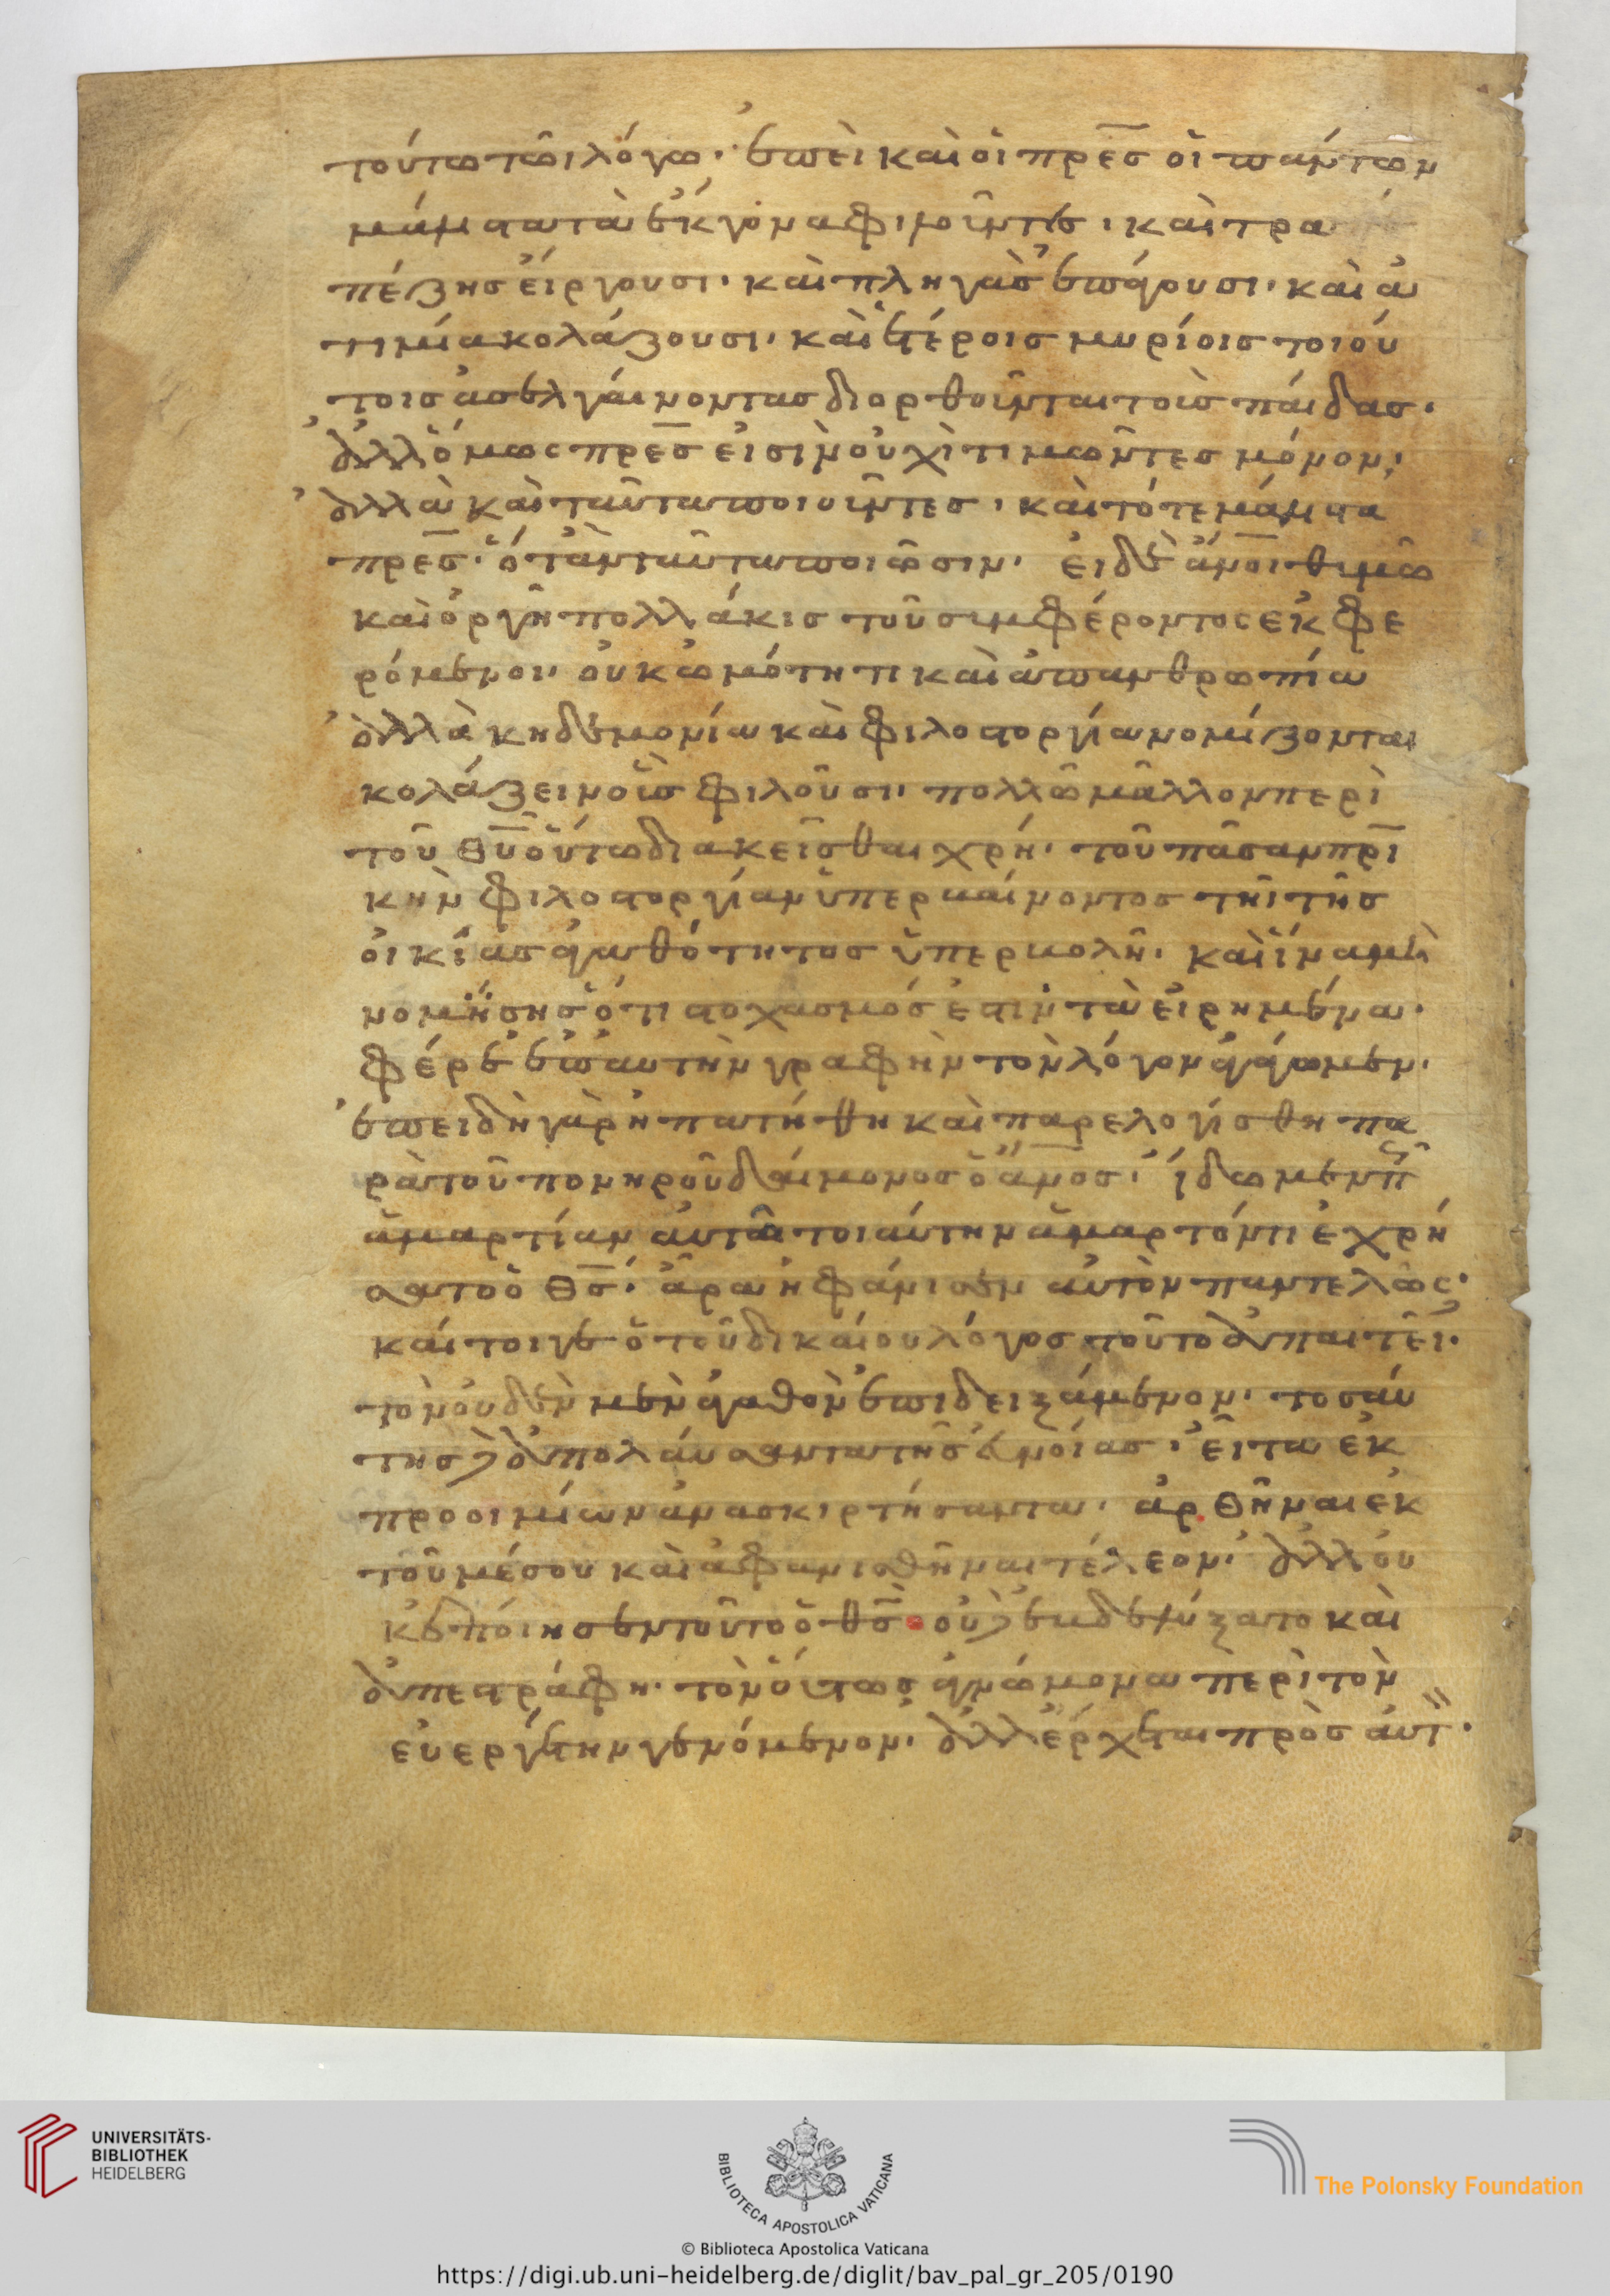 τούτω τῶι λόγω· ἐπεὶ καὶ οἱ πρ̅ε̅ς̅ οἱ πάντων
μάλιστα τὰ ἔκγονα φιλοῦντες· καὶ τρα
πέζης εἴργουσι· καὶ πληγὰς ἐπάγουσι· καὶ ἀ
τιμία κολάζουσι· καὶ ἑτέροις μυρίοις τοιού
τοις ἀσελγαίνοντας διορθοῦνται τοὺς παῖδας·
ἀλλ' ὅμως πρ̅ε̅ς̅ εἰσὶν οὐχὶ τιμῶντες μόνον·
ἀλλὰ καὶ ταῦτα ποιοῦντες· καὶ τότε μάλιστα
πρ̅ε̅ς̅· ὅταν ταῦτα ποιῶσιν· εἰ δὲ ἄ̅ν̅ο̅ι θυμῶ
καὶ ὀργῆ πολλάκις τοῦ συμφέροντος ἐκφε
ρόμενοι· οὐκ ὠμότητι καὶ ἀπανθρωπία
ἀλλὰ κηδεμονία καὶ φιλοστοργία νομίζονται
κολάζειν οὓς φιλοῦσι· πολλῶ μᾶλλον περὶ
τοῦ θ̅υ̅ οὕτω διακεῖσθαι χρή· τοῦ πᾶσαν πρ̅ι̅
κὴν φιλοστοργίαν ὑπερβαίνοντος τῆι τῆς
οἰκείας ἀγαθότητος ὑπερβολῆ· καὶ ἵνα μὴ
νομίσης ὅτι στοχασμός ἐστιν τὰ εἰρημένα·
φέρε ἐπ' αὐτὴν γραφὴν τὸν λόγον ἀγάγωμεν·
ἐπειδὴ γὰρ ἠπατήθη καὶ παρελογίσθη πα
ρὰ τοῦ πονηροῦ δαίμονος ὁ ἄ̅ν̅ο̅ς̅· ἴδωμεν πῶς
ἁμαρτίαν αὐτῶ τοιαύτην ἁμαρτόντι ἐχρή
σατο ὁ θ̅ς̅· ἆρα ἠφάνισεν αὐτὸν παντελῶς·
καίτοιγε ὁ τοῦ δικαίου λόγος τοῦτο ἀπαιτεῖ·
τὸν οὐδὲν μὲν ἀγαθὸν ἐπιδειξάμενον· τοσαύ
της δὲ ἀπολαύσαντα τῆς εὐνοίας· εἶτα ἐκ
προοιμίων ἀνασκιρτήσαντα· ἀρθῆναι ἐκ
τοῦ μέσου καὶ ἀφανισθῆναι τέλεον· ἀλλ' οὐ
κ ἐποίησεν τοῦτο ὁ θ̅ς̅· οὐδὲ ἐβδελύξατο καὶ
ἀπεστράφη· τὸν οὕτως ἀγνώμονα περὶ τὸν
εὐεργέτην γενόμενον· ἀλλ' ἔρχεται πρὸς αὐτ·
UNIVERSITÄTS-
BIBLIOTHEK
HEIDELBERG
BIBLIOTECA APOSTOLICA VATICANA
The Polonsky Foundation
© Biblioteca Apostolica Vaticana
https://digi.ub.uni-heidelberg.de/diglit/bav_pal_gr_205/0190